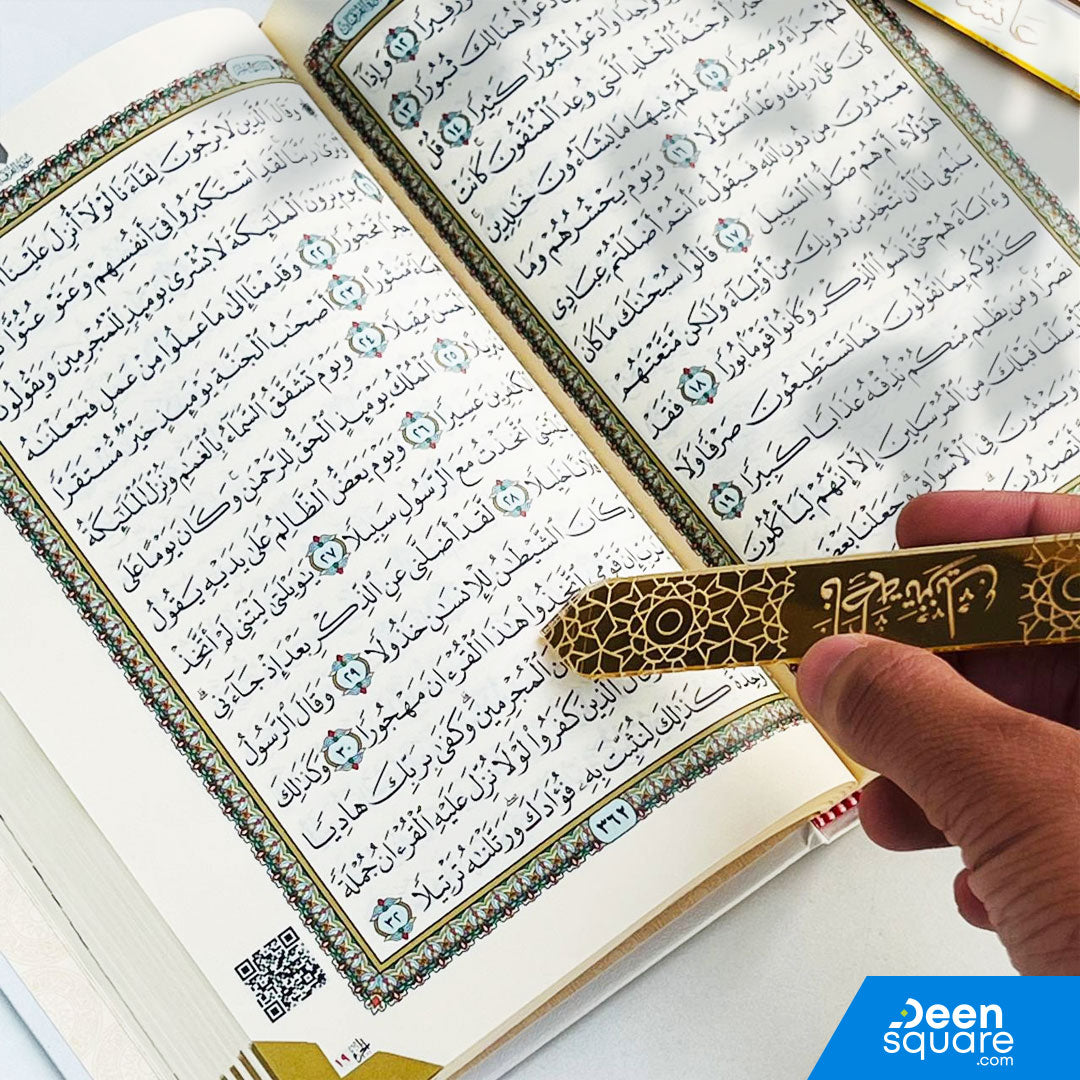 زَفِيرًا ١٢ وَإِذَآ
دَعَوْا۟ هُنَالِكَ ثُبُورًا ١٣
وَٰحِدًا وَٱدْعُوا۟ ثُبُورًا كَثِيرًا ١٤ قُلْ
أَمْ جَنَّةُ ٱلْخُلْدِ ٱلَّتِى وُعِدَ ٱلْمُتَّقُونَ كَانَتْ
لَهُمْ جَزَآءً وَمَصِيرًا ١٥ لَّهُمْ فِيهَا مَا يَشَآءُونَ خَٰلِدِينَ
كَانَ عَلَىٰ رَبِّكَ وَعْدًا مَّسْـُٔولًا ١٦ وَيَوْمَ يَحْشُرُهُمْ وَمَا
يَعْبُدُونَ مِن دُونِ ٱللَّهِ فَيَقُولُ ءَأَنتُمْ أَضْلَلْتُمْ عِبَادِى
هَٰٓؤُلَآءِ أَمْ هُمْ ضَلُّوا۟ ٱلسَّبِيلَ ١٧ قَالُوا۟ سُبْحَٰنَكَ مَا كَانَ
يَنۢبَغِى لَنَآ أَن نَّتَّخِذَ مِن دُونِكَ مِنْ أَوْلِيَآءَ وَلَٰكِن مَّتَّعْتَهُمْ
وَءَابَآءَهُمْ حَتَّىٰ نَسُوا۟ ٱلذِّكْرَ وَكَانُوا۟ قَوْمًۢا بُورًا ١٨ فَقَدْ
كَذَّبُوكُم بِمَا تَقُولُونَ فَمَا تَسْتَطِيعُونَ صَرْفًا وَلَا
نَصْرًا وَمَن يَظْلِم مِّنكُمْ نُذِقْهُ عَذَابًا كَبِيرًا ١٩
أَرْسَلْنَا قَبْلَكَ مِنَ ٱلْمُرْسَلِينَ إِلَّآ إِنَّهُمْ لَيَأْكُلُونَ
وَيَمْشُونَ فِى ٱلْأَسْوَاقِ وَجَعَلْنَا بَعْضَ
أَتَصْبِرُونَ
وَقَالَ ٱلَّذِينَ لَا يَرْجُونَ لِقَآءَنَا لَوْلَآ أُنزِلَ عَلَيْنَا
نَرَىٰ رَبَّنَا لَقَدِ ٱسْتَكْبَرُوا۟ فِىٓ أَنفُسِهِمْ وَعَتَوْ عُتُوًّا
يَوْمَ يَرَوْنَ ٱلْمَلَٰٓئِكَةَ لَا بُشْرَىٰ يَوْمَئِذٍ لِّلْمُجْرِمِينَ وَيَقُولُونَ
مَّحْجُورًا ٢٢ وَقَدِمْنَآ إِلَىٰ مَا عَمِلُوا۟ مِنْ عَمَلٍ فَجَعَلْنَٰهُ
مَّنثُورًا ٢٣ أَصْحَٰبُ ٱلْجَنَّةِ يَوْمَئِذٍ خَيْرٌ مُّسْتَقَرًّا
وَأَحْسَنُ مَقِيلًا ٢٤ وَيَوْمَ تَشَقَّقُ ٱلسَّمَآءُ بِٱلْغَمَٰمِ وَنُزِّلَ ٱلْمَلَٰٓئِكَةُ
تَنزِيلًا ٢٥ ٱلْمُلْكُ يَوْمَئِذٍ ٱلْحَقُّ لِلرَّحْمَٰنِ وَكَانَ يَوْمًا عَلَى
ٱلْكَٰفِرِينَ عَسِيرًا ٢٦ وَيَوْمَ يَعَضُّ ٱلظَّالِمُ عَلَىٰ يَدَيْهِ يَقُولُ
يَٰلَيْتَنِى ٱتَّخَذْتُ مَعَ ٱلرَّسُولِ سَبِيلًا ٢٧ يَٰوَيْلَتَىٰ لَيْتَنِى لَمْ أَتَّخِذْ
فُلَانًا خَلِيلًا ٢٨ لَّقَدْ أَضَلَّنِى عَنِ ٱلذِّكْرِ بَعْدَ إِذْ جَآءَنِى
وَكَانَ ٱلشَّيْطَٰنُ لِلْإِنسَٰنِ خَذُولًا ٢٩ وَقَالَ ٱلرَّسُولُ
يَٰرَبِّ إِنَّ قَوْمِى ٱتَّخَذُوا۟ هَٰذَا ٱلْقُرْءَانَ مَهْجُورًا ٣٠ وَكَذَٰلِكَ
ٱلْمُجْرِمِينَ وَكَفَىٰ بِرَبِّكَ هَادِيًا
وَقَالَ ٱلَّذِينَ كَفَرُوا۟ لَوْلَا نُزِّلَ عَلَيْهِ ٱلْقُرْءَانُ جُمْلَةً
وَٰحِدَةً كَذَٰلِكَ لِنُثَبِّتَ بِهِۦ فُؤَادَكَ وَرَتَّلْنَٰهُ تَرْتِيلًا ٣٢
٣٦٢
الجزء ١٩
Deen
square
.com